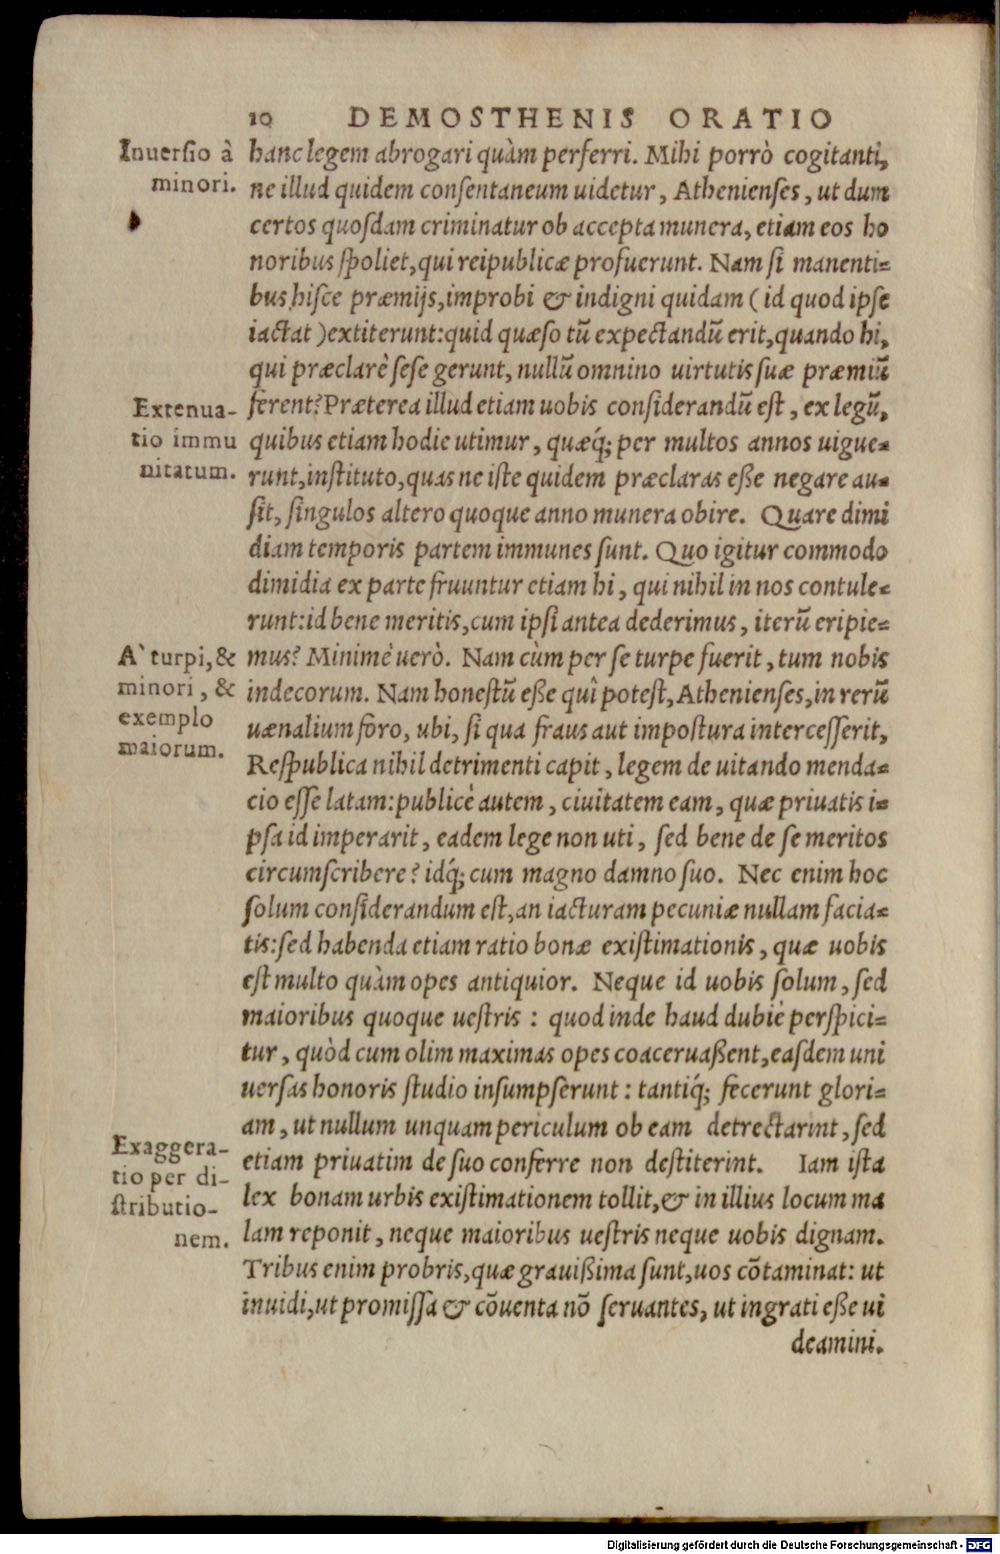 10 DEMOSTHENIS ORATIO
Inuersio à
minori.
hanc legem abrogari quàm perferri. Mihi porrò cogitanti,
ne illud quidem consentaneum uidetur, Athenienses, ut dum
certos quosdam criminatur ob accepta munera, etiam eos ho
noribus spoliet, qui reipublicæ profuerunt. Nam si manenti=
bus hisce præmijs, improbi & indigni quidam (id quod ipse
iactat) extiterunt: quid quæso tū expectandū erit, quando hi,
qui præclarè sese gerunt, nullū omnino uirtutis suæ præmiū
Extenua-
tio immu
nitatum.
ferent? Præterea illud etiam uobis considerandū est, ex legū,
quibus etiam hodie utimur, quæq́; per multos annos uigue=
runt, instituto, quas ne iste quidem præclaras eße negare au=
sit, singulos altero quoque anno munera obire. Quare dimi
diam temporis partem immunes sunt. Quo igitur commodo
dimidia ex parte fruuntur etiam hi, qui nihil in nos contule=
runt: id bene meritis, cum ipsi antea dederimus, iterū eripie=
A` turpi, &
minori, &
exemplo
maiorum.
mus? Minimè uerò. Nam cùm per se turpe fuerit, tum nobis
indecorum. Nam honestū eße quî potest, Athenienses, in rerū
uænalium foro, ubi, si qua fraus aut impostura intercesserit,
Respublica nihil detrimenti capit, legem de uitando menda=
cio esse latam: publicè autem, ciuitatem eam, quæ priuatis i=
psa id imperarit, eadem lege non uti, sed bene de se meritos
circumscribere? idq́; cum magno damno suo. Nec enim hoc
solum considerandum est, an iacturam pecuniæ nullam facia=
tis: sed habenda etiam ratio bonæ existimationis, quæ uobis
est multo quàm opes antiquior. Neque id uobis solum, sed
maioribus quoque uestris: quod inde haud dubiè perspici=
tur, quòd cum olim maximas opes coaceruaßent, easdem uni
uersas honoris studio insumpserunt: tantiq́; fecerunt glori=
am, ut nullum unquam periculum ob eam detrectarint, sed
Exaggera-
tio per di-
stributio-
nem.
etiam priuatim de suo conferre non destiterint. Iam ista
lex bonam urbis existimationem tollit, & in illius locum ma
lam reponit, neque maioribus uestris neque uobis dignam.
Tribus enim probris, quæ grauißima sunt, uos cōtaminat: ut
inuidi, ut promissa & cōuenta nō seruantes, ut ingrati eße ui
deamini.
Digitalisierung gefördert durch die Deutsche Forschungsgemeinschaft - DFG